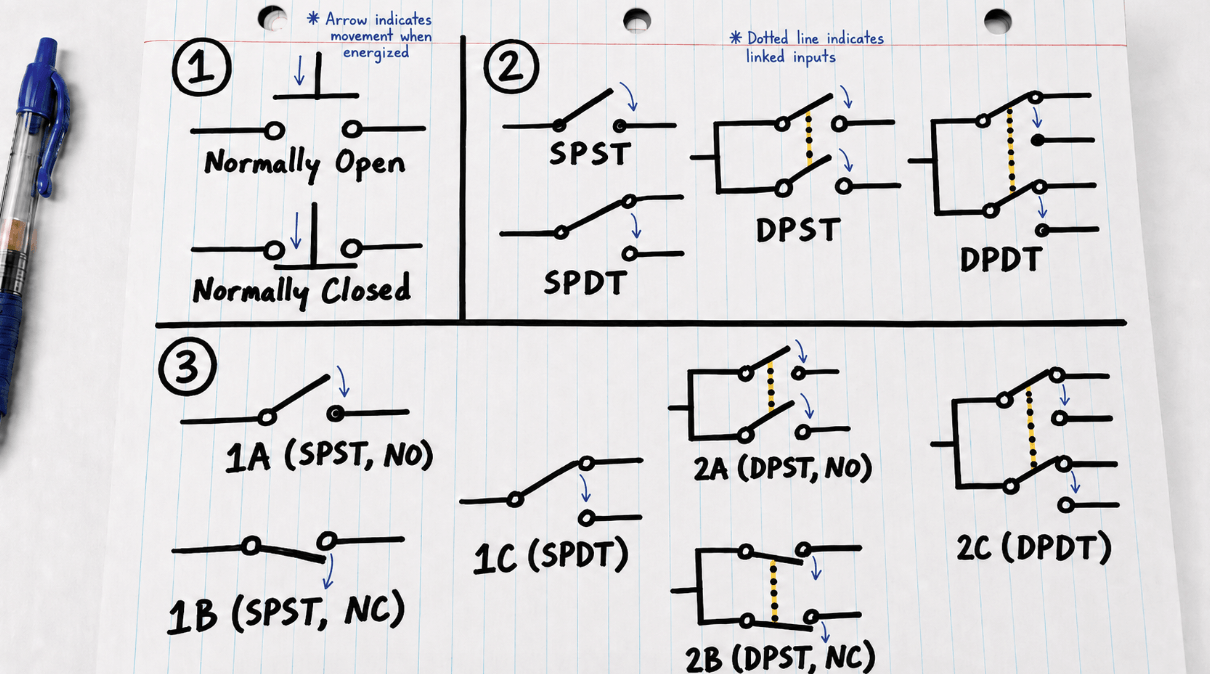 * Arrow indicates
movement when
energized
* Dotted line indicates
linked inputs
1
Normally Open
Normally Closed
2
SPST
SPDT
DPST
DPDT
3
1A (SPST, NO)
1B (SPST, NC)
1C (SPDT)
2A (DPST, NO)
2B (DPST, NC)
2C (DPDT)